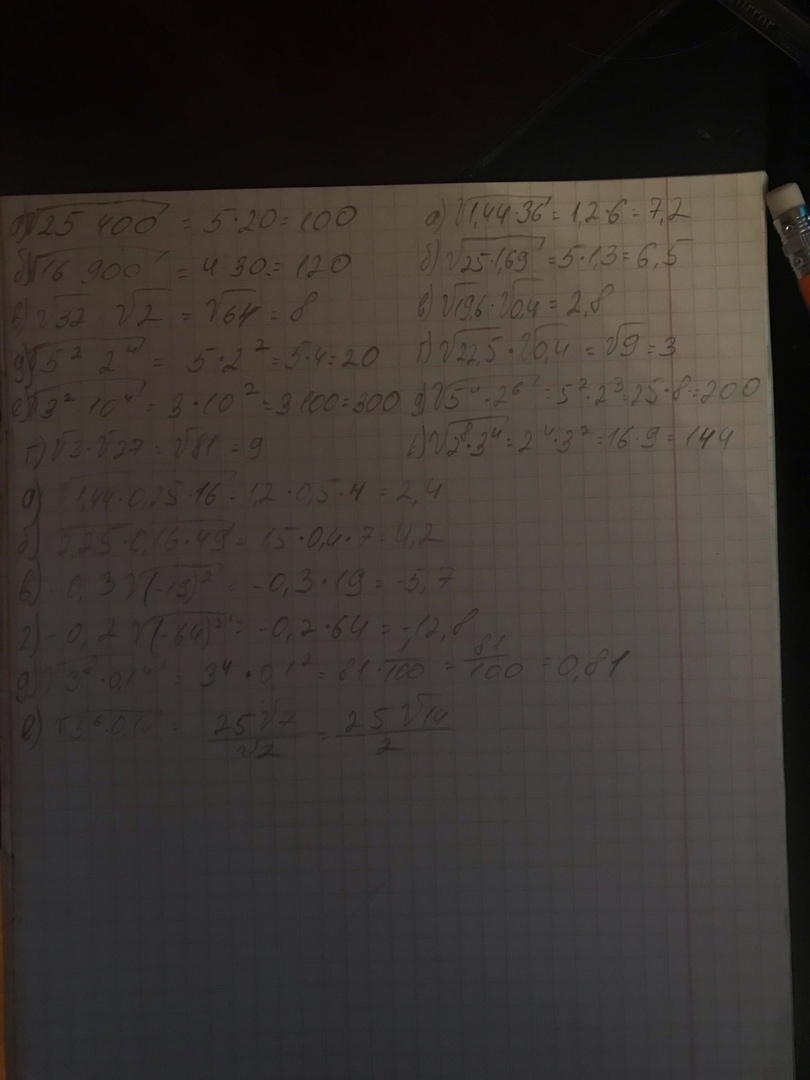 а) √25 400 = 5·20 = 100
б) √16 900 = 4 30 = 120
в) √32 √2 = √64 = 8
д) √5² 2⁴ = 5·2² = 5·4 = 20
е) √3² 10⁴ = 3·10² = 3 100 = 300
г) √3·√27 = √81 = 9
а) √1,44·36 = 1,2·6 = 7,2
б) √25·1,69 = 5·1,3 = 6,5
в) √19,6·√0,4 = 2,8
г) √22,5·√0,4 = √9 = 3
д) √5⁴·2⁶ = 5²·2³ = 25·8 = 200
е) √2⁸·3⁴ = 2⁴·3² = 16·9 = 144
а) √1,44·0,25·16 = 1,2·0,5·4 = 2,4
б) √2,25·0,16·49 = 1,5·0,4·7 = 4,2
в) -0,3√(-19)² = -0,3·19 = -5,7
г) -0,2√(-64)² = -0,2·64 = -12,8
д) √3⁸·0,1⁴ = 3⁴·0,1² = 81·100 = 81/100 = 0,81
е) = 25√7/√2 = 25√14/2